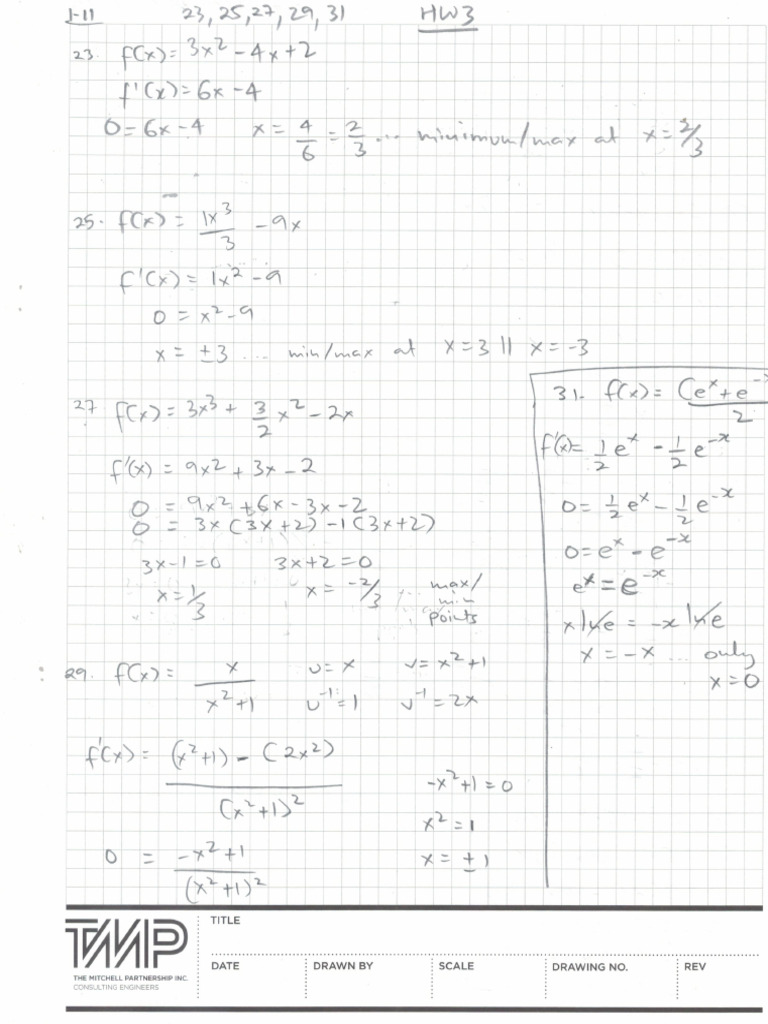 1-11 23, 25, 27, 29, 31 HW3
23. f(x) = 3x² - 4x + 2
f'(x) = 6x - 4
0 = 6x - 4 x = 4/6 = 2/3 ... minimum/max at x = 2/3
25. f(x) = 1x³/3 - 9x
f'(x) = 1x² - 9
0 = x² - 9
x = ±3 ... min/max at x = 3 || x = -3
27 f(x) = 3x³ + 3/2 x² - 2x
f'(x) = 9x² + 3x - 2
0 = 9x² + 6x - 3x - 2
0 = 3x (3x+2) - 1(3x+2)
3x - 1 = 0 3x + 2 = 0
x = 1/3 x = -2/3 ... max/
min
points
29. f(x) = x/(x²+1) u = x v = x² + 1
u⁻¹ = 1 v⁻¹ = 2x
f'(x) = (x²+1) - (2x²)/(x²+1)²
0 = -x²+1/(x²+1)²
-x² + 1 = 0
x² = 1
x = ±1
31. f(x) = (eˣ + e⁻ˣ/2
f'(x) = 1/2 eˣ - 1/2 e⁻ˣ
0 = 1/2 eˣ - 1/2 e⁻ˣ
0 = eˣ - e⁻ˣ
eˣ = e⁻ˣ
x lne = -x lne
x = -x ... only
x = 0
TMP
THE MITCHELL PARTNERSHIP INC.
CONSULTING ENGINEERS
TITLE
DATE DRAWN BY SCALE DRAWING NO. REV